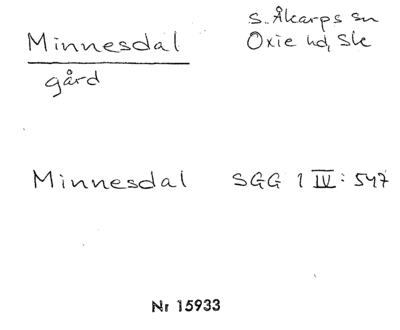 Minnesdal
gård
S. Åkarps sn
Oxie hd, Sk
Minnesdal SGG 1 IV: 547
Nr 15933